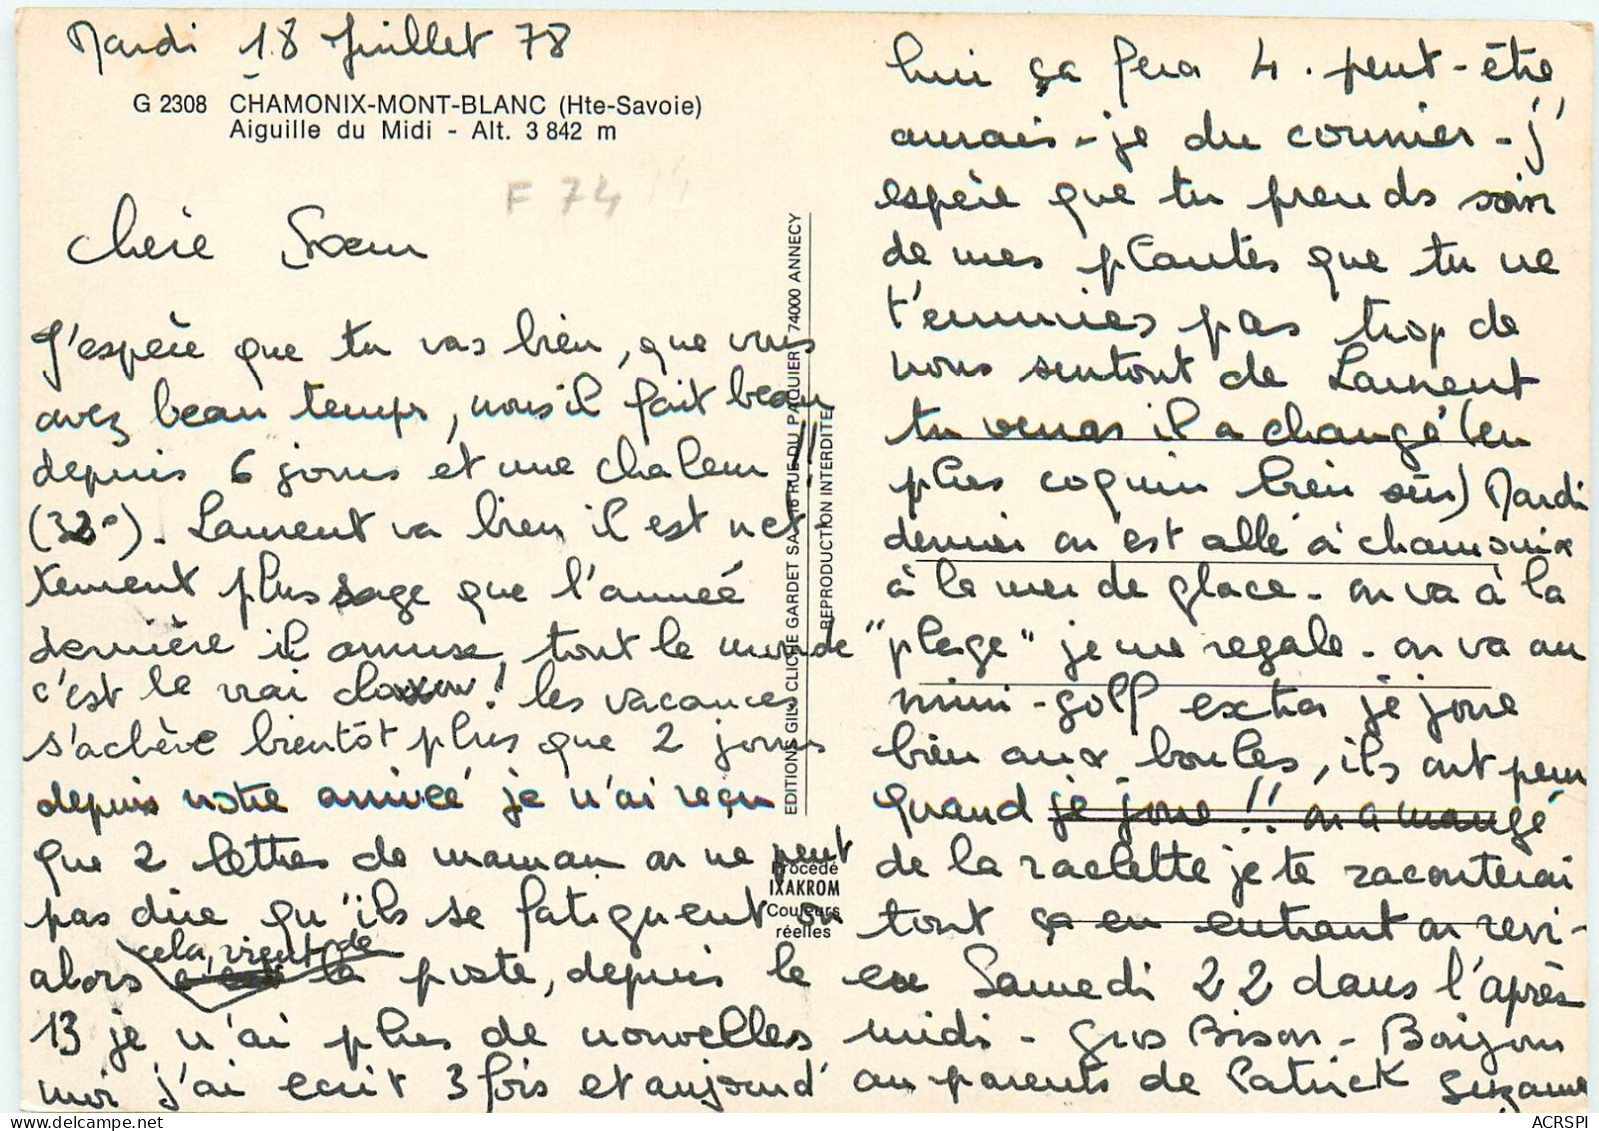 Mardi 18 Juillet 78
G 2308 CHAMONIX-MONT-BLANC (Hte-Savoie)
Aiguille du Midi - Alt. 3 842 m
F 74
Chère Sœur
J'espère que tu vas bien, que vous
avez beau temps, nous il fait beau
depuis 6 jours et une chaleur !!
(32°). Laurent va bien il est net-
tement plus sage que l'année
dernière il amuse, tout le monde
c'est le vrai clown ! les vacances
s'achève bientôt plus que 2 jours
depuis notre arrivée je n'ai reçu
que 2 lettres de maman on ne peut
pas dire qu'ils se fatiguent ou
alors cela, vient de la poste, depuis le
13 je n'ai plus de nouvelles
moi j'ai ecrit 3 fois et aujourd'
hui ça fera 4. peut-être
aurais-je du courrier - j'
espère que tu prends soin
de mes plantes que tu ne
t'ennuies pas trop de
nous surtout de Laurent
tu verras il a changé (en
plus coquin bien sûr) Mardi
dernier on est allé à chamonix
à la mer de glace - on va à la
"plage" je me regale - on va au
mini-golf extra je joue
bien aux boules, ils ont peur
quand je joue !! on a mangé
de la raclette je te raconterai
tout ça en entrant on revi-
en Samedi 22 dans l'après
midi - Gros Bison - Bonjour
au parents de Patrick Suzanne
EDITIONS GIL, CLICHÉ GARDET SA, 16 RUE DU PAQUIER, 74000 ANNECY
REPRODUCTION INTERDITE
Procédé
IXAKROM
Couleurs
réelles
ACRSPI